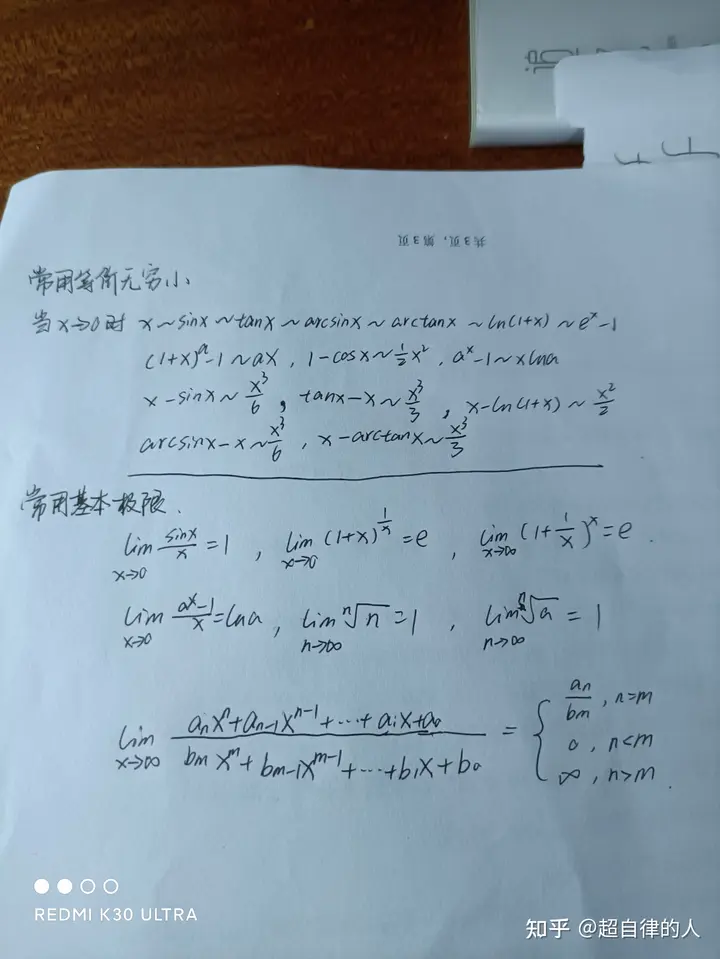 共3页，第3页
常用等价无穷小
当x→0时 x~sinx~tanx~arcsinx~arctanx~ln(1+x)~eˣ-1
(1+x)ᵃ-1~ax，1-cosx~½x²，aˣ-1~xlna
x-sinx~x³/6，tanx-x~x³/3，x-ln(1+x)~x²/2
arcsinx-x~x³/6，x-arctanx~x³/3
常用基本极限.
lim x→0 sinx/x=1，lim x→0 (1+x)^(1/x)=e，lim x→∞ (1+1/x)ˣ=e.
lim x→0 (aˣ-1)/x=lna，lim n→∞ ⁿ√n=1，lim n→∞ ⁿ√a=1
lim x→∞ (aₙxⁿ+aₙ₋₁xⁿ⁻¹+⋯+a₁x+a₀)/(bₘxᵐ+bₘ₋₁xᵐ⁻¹+⋯+b₁x+b₀) = { aₙ/bₘ，n=m
0，n<m
∞，n>m.
REDMI K30 ULTRA
知乎 @超自律的人